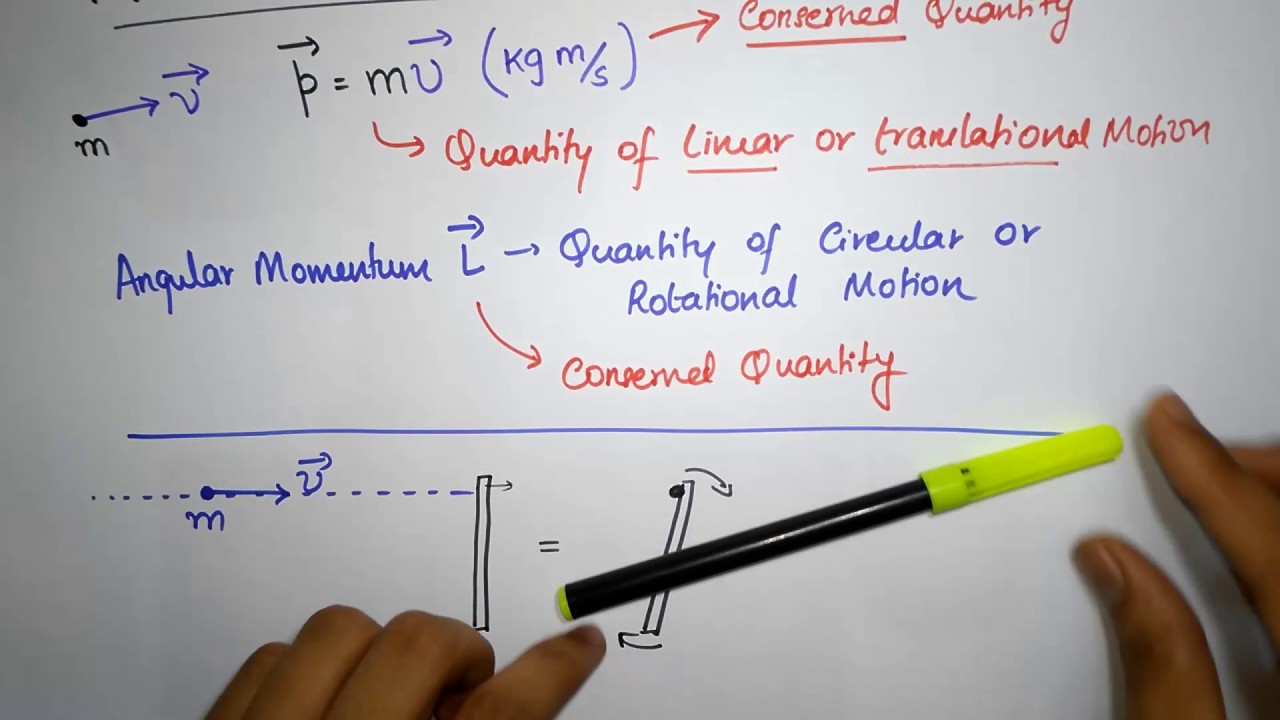 Conserved Quantity
p⃗ = mv⃗ (kg m/s)
v⃗
m
Quantity of Linear or translational Motion
Angular Momentum L⃗ → Quantity of Circular or
Rotational Motion
Conserved Quantity
v⃗
m
=